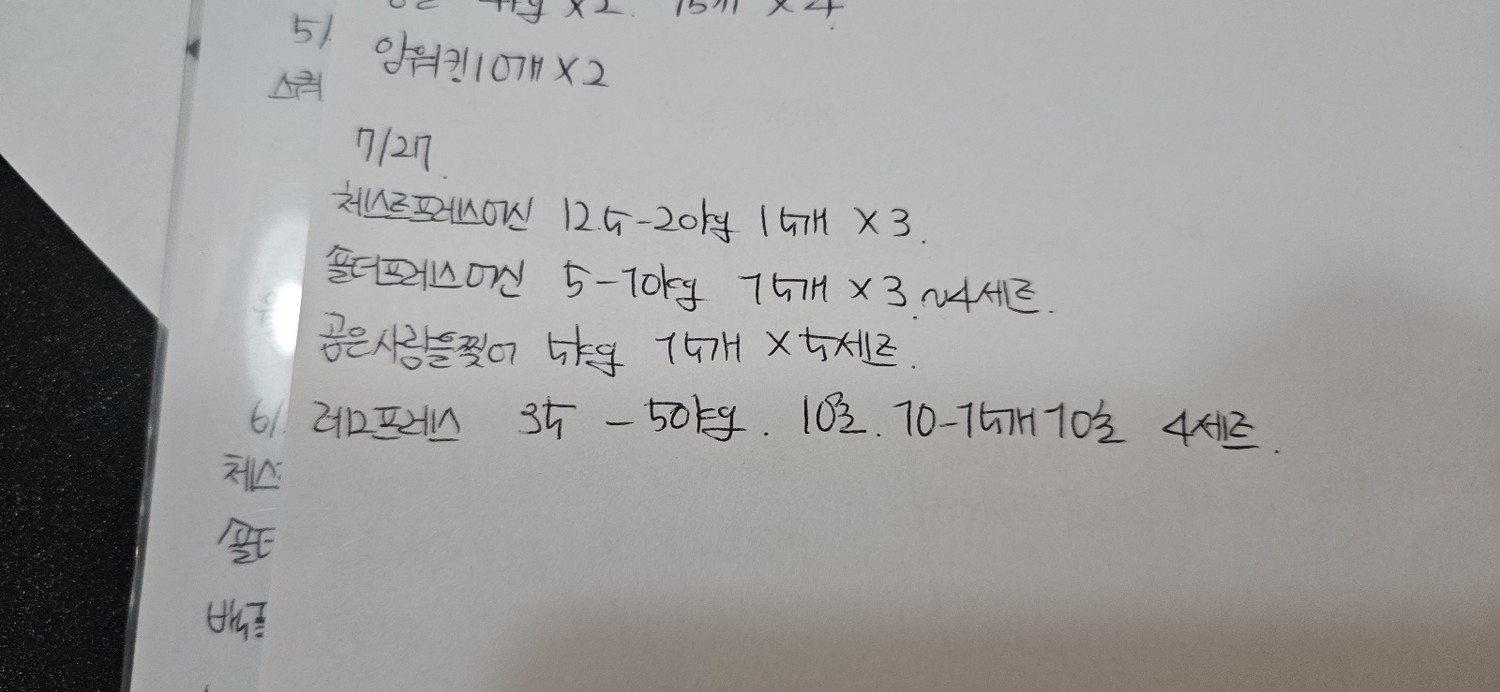 5/
스쿼
15개 x 4
암워킨10개 x 2
7/27
체스트프레스머신 12.5-20kg 15개 x 3.
숄더프레스머신 5-10kg 15개 x 3.~4세트.
곰은사람을찢어 5kg 15개 x 5세트.
레그프레스 35 - 50kg. 10초. 10-15개 10초 4세트.
6/
체스
숄더